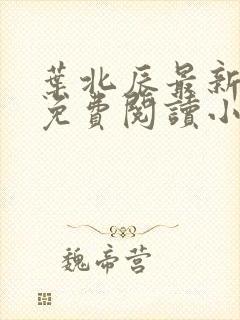 葉北辰最新
免費閱讀小
魏帝营